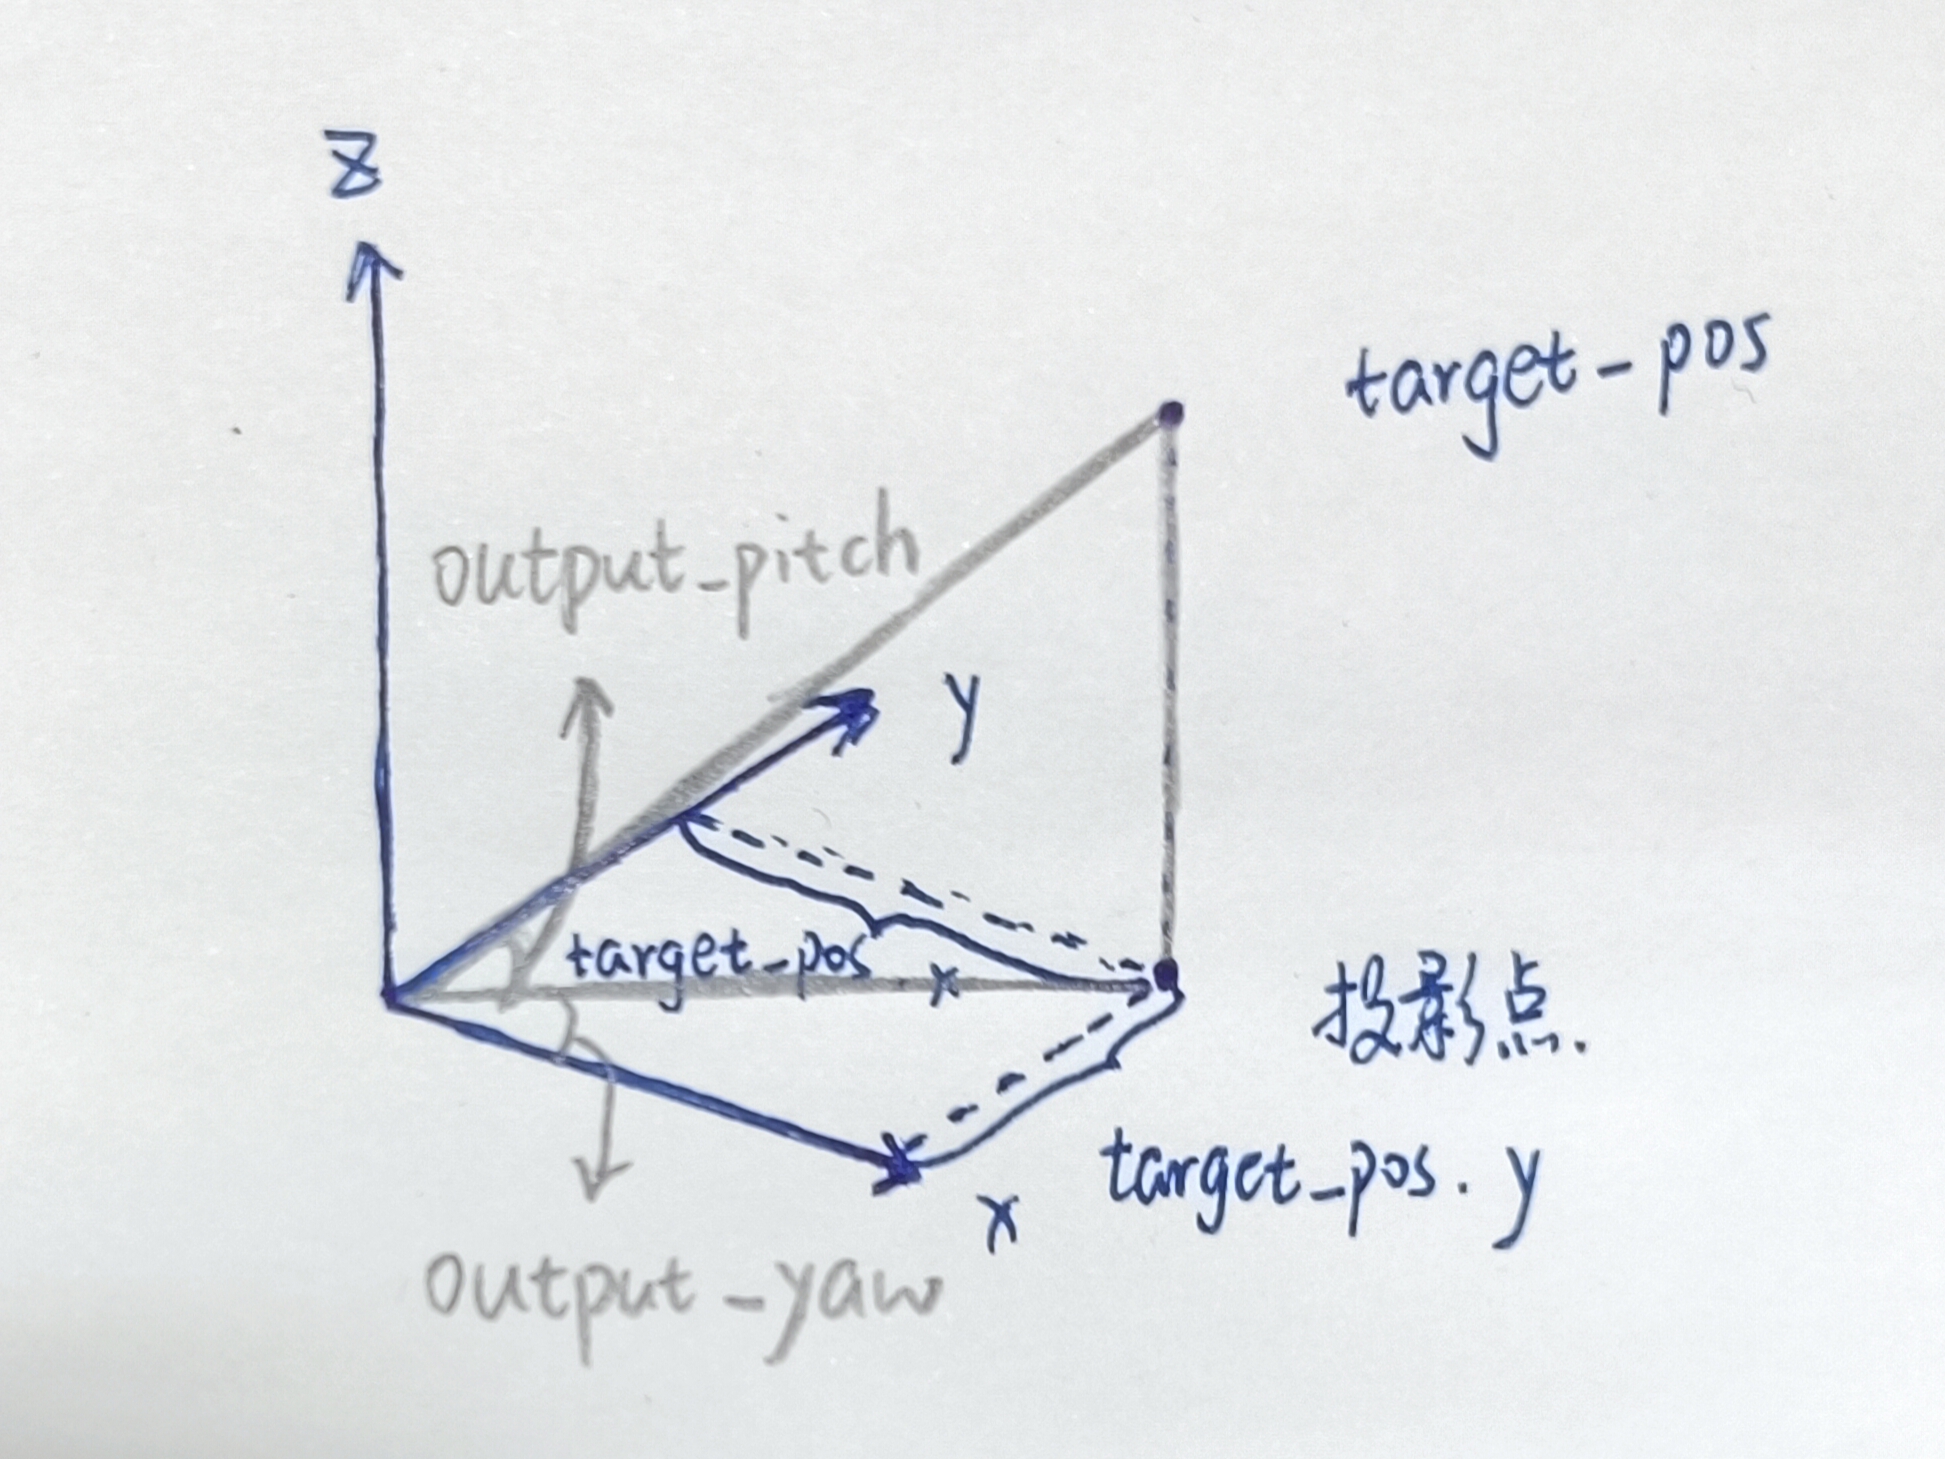 z
target_pos
output_pitch
y
target_pos.x
投影点.
target_pos.y
x
output_yaw